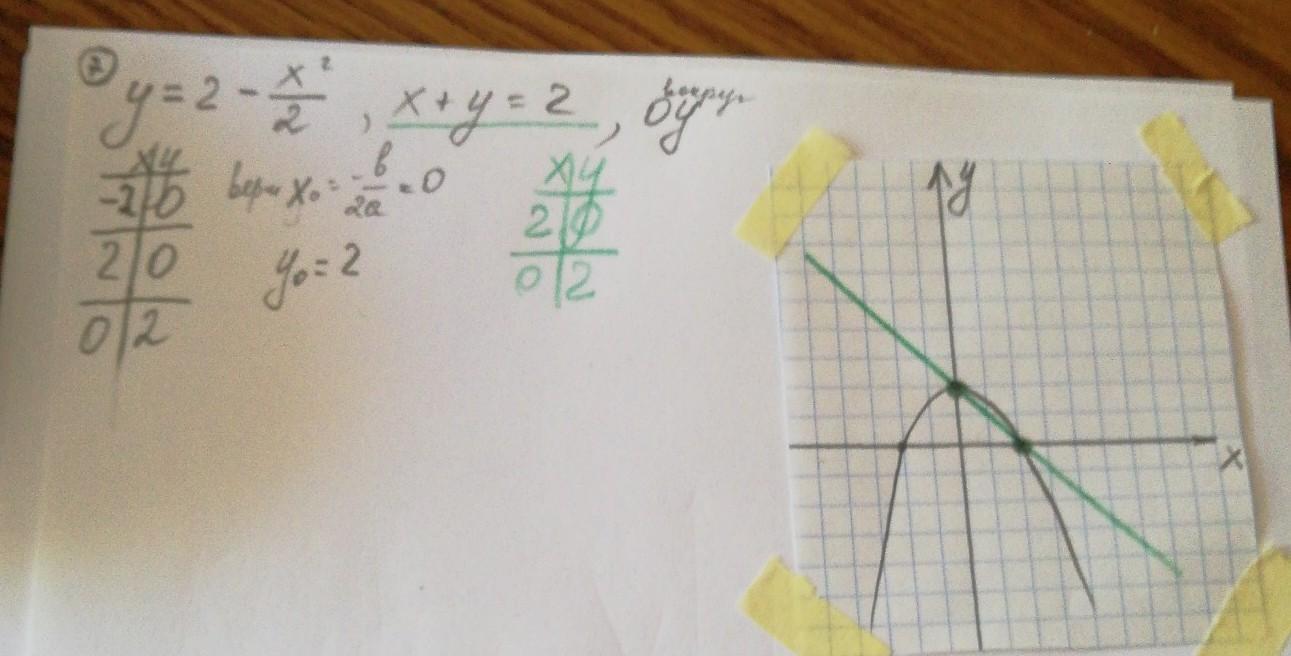 ② y = 2 - x²/2 , x + y = 2 , вокруг Oy
x | y
-2 | 0
2 | 0
0 | 2
верш x₀ = -b/2a = 0
y₀ = 2
x | y
2 | 0
0 | 2
y
x